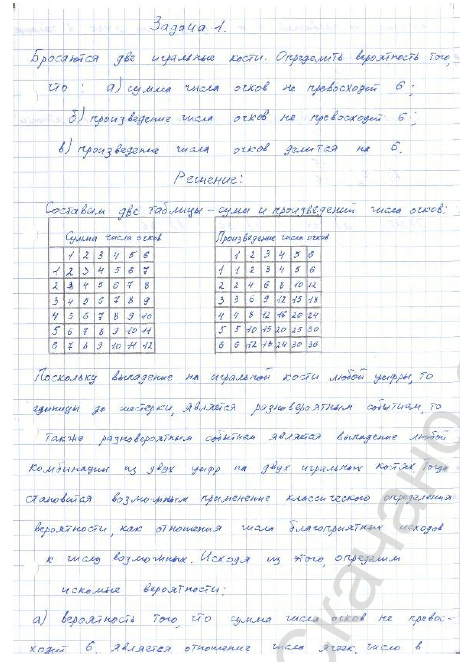 Задача 1.
Бросаются две игральные кости. Определить вероятность того,
что: а) сумма числа очков не превосходит 6;
б) произведение числа очков не превосходит 6;
в) произведение числа очков делится на 6.
Решение:
Составим две таблицы – сумм и произведений числа очков:
Сумма числа очков
1 2 3 4 5 6
1 2 3 4 5 6 7
2 3 4 5 6 7 8
3 4 5 6 7 8 9
4 5 6 7 8 9 10
5 6 7 8 9 10 11
6 7 8 9 10 11 12
Произведение числа очков
1 2 3 4 5 6
1 1 2 3 4 5 6
2 2 4 6 8 10 12
3 3 6 9 12 15 18
4 4 8 12 16 20 24
5 5 10 15 20 25 30
6 6 12 18 24 30 36
Поскольку выпадение на игральной кости любой цифры, то
единицы до шестерки, является равновероятным событием, то
также равновероятным событием является выпадение любой
комбинации из двух цифр на двух игральных костях. Тогда
становится возможным применение классического определения
вероятности, как отношения числа благоприятных исходов
к числу возможных. Исходя из этого, определим
искомые вероятности:
а) вероятность того, что сумма числа очков не превос-
ходит 6, является отношение числа ячеек, число в
Скачано с